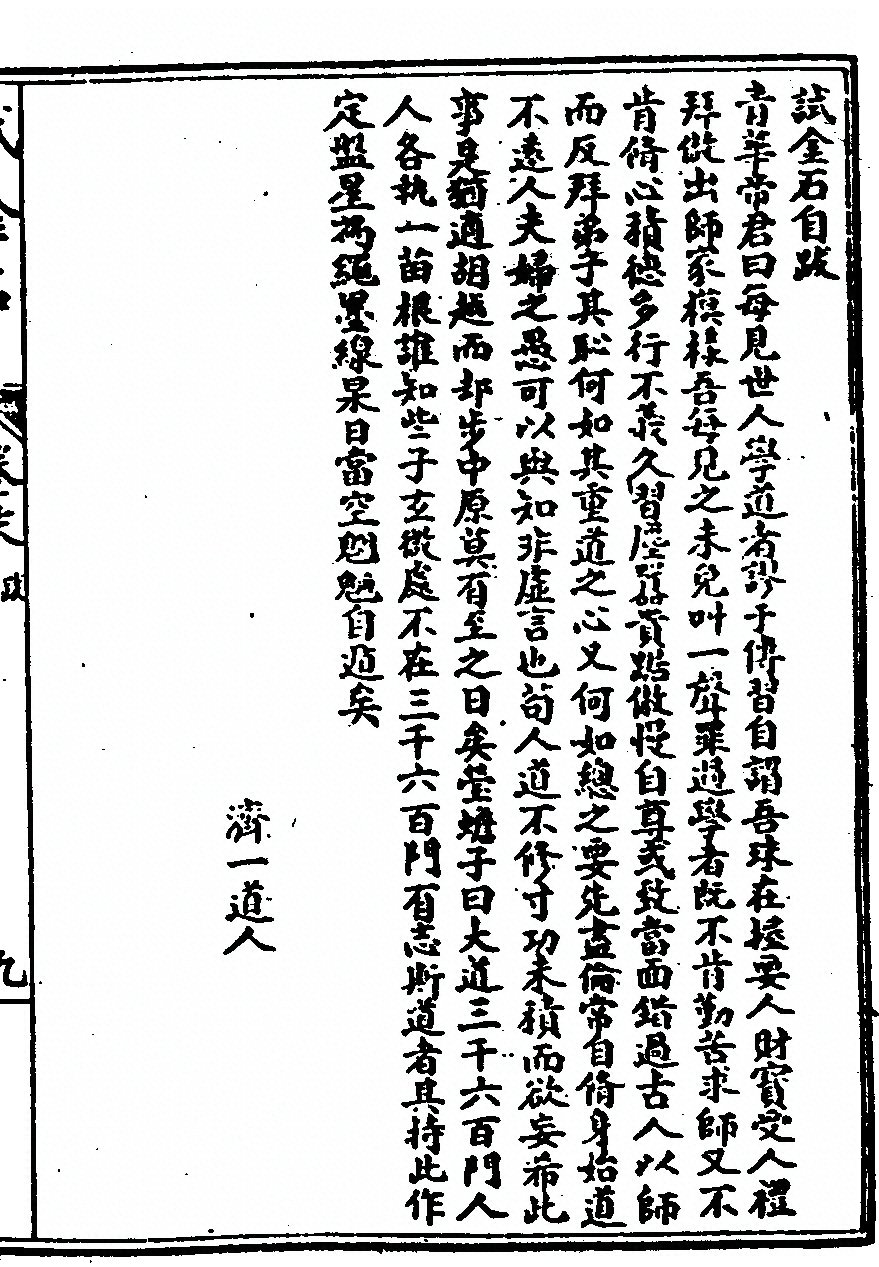 試金石自跋
青華帝君曰每見世人學道者謬于俗習自謂吾珠在握要人財寶受人禮
拜做出師家模樣吾每見之未免叫一聲罪過學者既不肯勤苦求師又不
肯脩心積德多行不義久習塵囂貢諂傲慢自尊或致當面錯過古人以師
而反拜弟子其恥何如其重道之心又何如總之要先盡倫常自脩身始道
不遠人夫婦之愚可以與知非虛言也苟人道不修寸功未積而欲妄希此
事是猶適胡越而却步中原莫有至之日矣瑩蟾子曰大道三千六百門人
人各執一苗根誰知些子玄微處不在三千六百門有志斯道者其持此作
定盤星為繩墨線杲日當空魍魎自遁矣
濟一道人
九